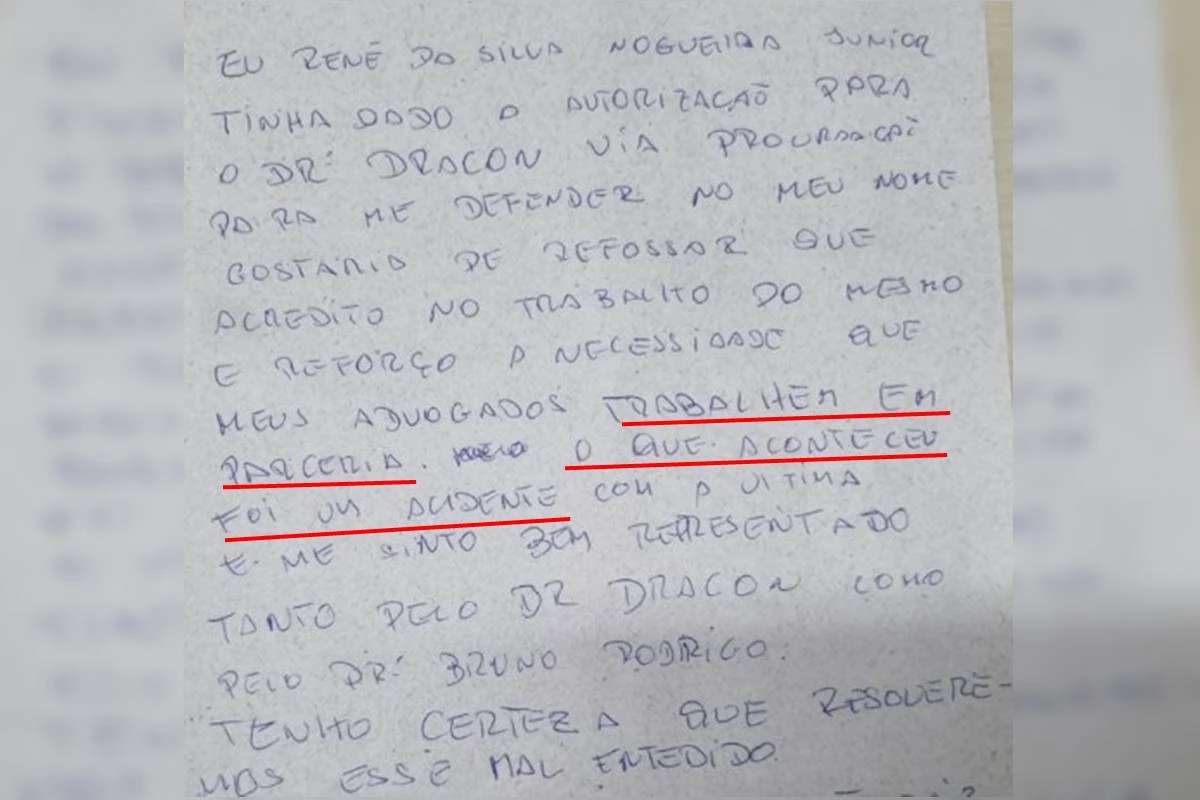 EU RENÊ DA SILVA NOGUEIRA JUNIOR
TINHA DADO A AUTORIZAÇAÕ PARA
O DR. DRACON VIA PROCURAÇAÕ
PARA ME DEFENDER NO MEU NOME
GOSTARIA DE REFOSSAR QUE
ACREDITO NO TRABALHO DO MESMO
E REFORÇO A NECESSIDADE QUE
MEUS ADVOGADOS TRABALHEM EM
PARCERIA. O QUE ACONTECEU
FOI UM ACIDENTE COM A VITIMA
E ME SINTO BEM REPRESENTADO
TANTO PELO DR DRACON COMO
PELO DR. BRUNO RODRIGO.
TENHO CERTEZA QUE RESOLVERE-
MOS ESSE MAL ENTEDIDO.